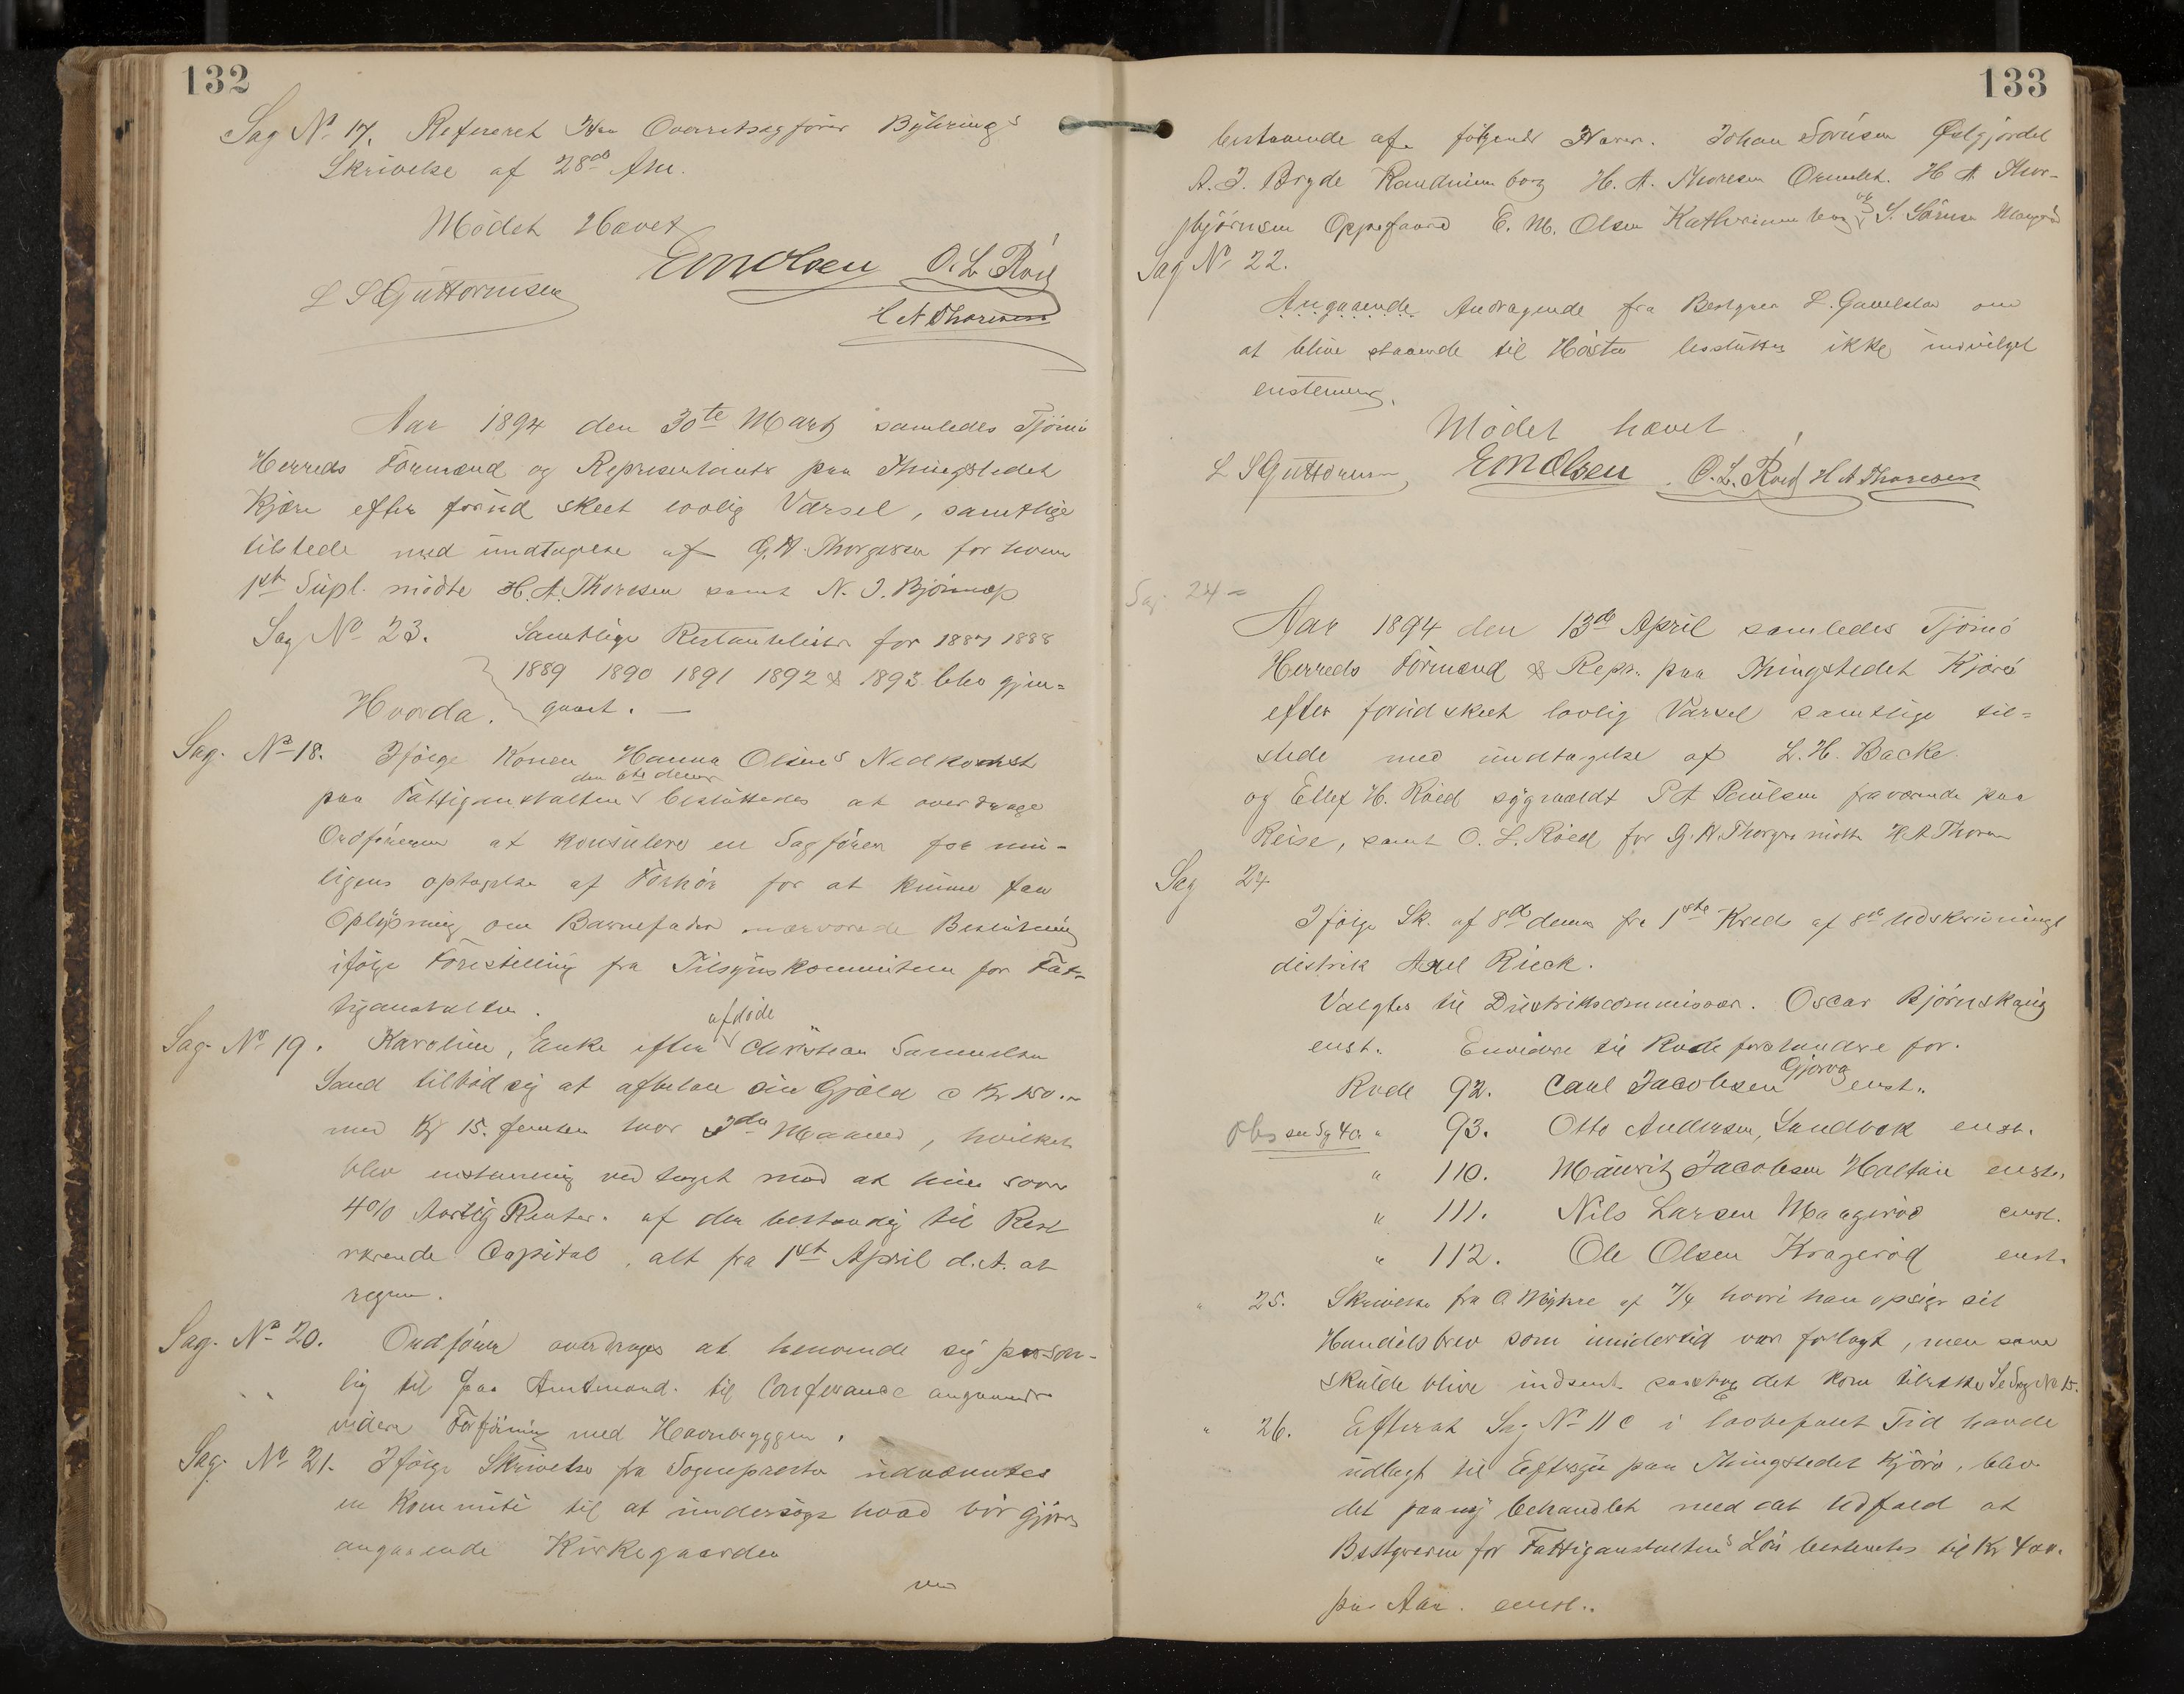 132
Sag No 17. Refereret Hr Overretssagfører Bÿhrings
Skrivelse af 28de
Mødet Hævet
EmOlsen O. L. Röed
L S Guttormsen
H A Thoresen
Aar 1894 den 30te Marts samledes Tjömö
Herreds Formænd og Representanter paa Thingstedet
Kjære efter forud skeet lovlig Varsel, samtlige
tilstede med undtagelse af G. A. Thorgersen for hvem
1ste Supl. mödte H. A. Thoresen samt N. J.
Sag No 23. Samtlige Restanselister for 1887 1888
1889 1890 1891 1892 & 1893 blev gjen=
gaaet. —
Hvorda.
Sag. No 18. Ifölge Konen Hanna Olsens Nedkomst
den 6te dennes
paa Fattiganstalten besluttedes at overdrage
Ordföreren at konsulere en Sagförer for mu-
ligens optagelse af Forhör for at kunne faa
Oplÿsning om Barnefader nærværede Beslutning
ifölge Forestilling fra Tilsÿnskommiteen for Fat-
tiganstalten.
afdöde
Sag No 19. Karoline, Enke efter Christian Samuelsen
Sand tilböd sig at afbetale sin Gjæld c Kr 150.-
med Kr 15. femten hver 3die Maaned, hvilket
blev enstemmig vedtaget mod at hun svarer
4% Aarlig Renter. af den bestandig til Rest
værende Capital, alt fra 1ste April d. A. at
regne.
Sag. No 20. Ordförer overdrages at henvende sig person-
lig til Amtmand. til Conferance angaaende
videre Forföining med Havnebryggen.
Sag. No 21. Ifölge Skrivelse fra Sogneprest udnævntes
en Kommite til at undersöge hvad bör gjöres
angaaende Kirkegaarden
133
bestaaende af. fölgende Johan Sörensen Östgjordet
A. J. Bryde H. A. Thoresen Ormelet. H A Thor-
björnsen Oppegaard E. M. Olsen og S. Sörensen
Sag No 22.
Angaaende Andragende fra Bestyrer L. om
at blive staaende til Hösten besluttes ikke indvilget
enstemmig.
Mödet hævet
L S Guttormsen EmOlsen O. L. Röed H A Thoresen
Sag 24 -
Aar 1894 den 13de April samledes Tjömö
Herreds Formænd & Repr. paa Thingstedet Kjærö
efter forud skeet lovlig Varsel samtlige til=
stede med undtagelse af L. H. Backe
og Ellef H. Röed sygmeldt P A Paulsen fraværende paa
Reise, samt O. L. Röed for G. A. Thorgers mötte H A Thoresen
Sag 24
Ifölge Sk. af 8de dennes fra 1ste Kreds af 8de Udskrivnings
distrik Axel Rieck.
Valgtes til Distriktscommissær. Oscar Björnskaug
enst. Envidere til Rode forstandere for.
Rode 92. Carl Jacobsen Gjerva enst.
Obs se Sg 4a " 93. Otto Andersen, Sandbæk enst.
" 110. Mauritz Jacobsen Holtan enst.
" 111. Nils Larsen Maageröd enst.
" 112. Ole Olsen Krageröd enst.
" 25. Skrivelse fra O. af 7/4 hvori han opsiger sit
Handelsbrev som imidlertid var forlagt, men som
skulde blive indsent saasnart det kom tilrette Se Sag No 15.
" 26. Efterat Sag No 11 c i lovbefalet Tid havde
udlagt til Eftersyn paa Thingstedet Kjærö, blev
det paany behandlet med det Udfald at
Bestyreren for Fattiganstaltens Lön bestemtes til Kr 400.
pr. Aar. enst.